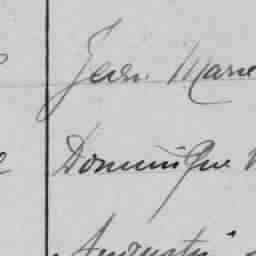 Jean Marie
Dominique
Augustin